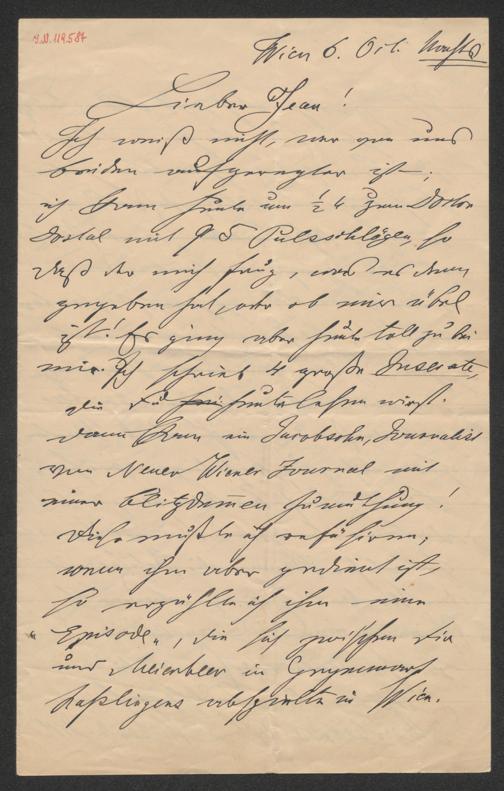 I.N. 119.584
Wien 6. Oct. Nachts
Lieber Jean!
Ich weiß nicht, wer von uns
beiden aufgeregter ist;
ich kam heute um ½ 4 zum Doctor
Dostal mit 95 Pulsschlägen, so
daß er mich frug, was es denn
gegeben hat, oder ob mir übel
ist! Es ging aber heute toll zu bei
mir. Ich schrieb 4 große Inserate,
die Du heute lesen wirst.
Dann kam ein Jacobsohn, Journalist
vom Neuen Wiener Journal mit
einer blitzdummen Zumuthung!
Diese mußte ich refüsiren,
wenn ihm aber gedient ist,
so erzählte ich ihm eine
"Episode", die sich zwischen Dir
und Meierbeer in Gegenwart
Haslingers abspielte in Wien.